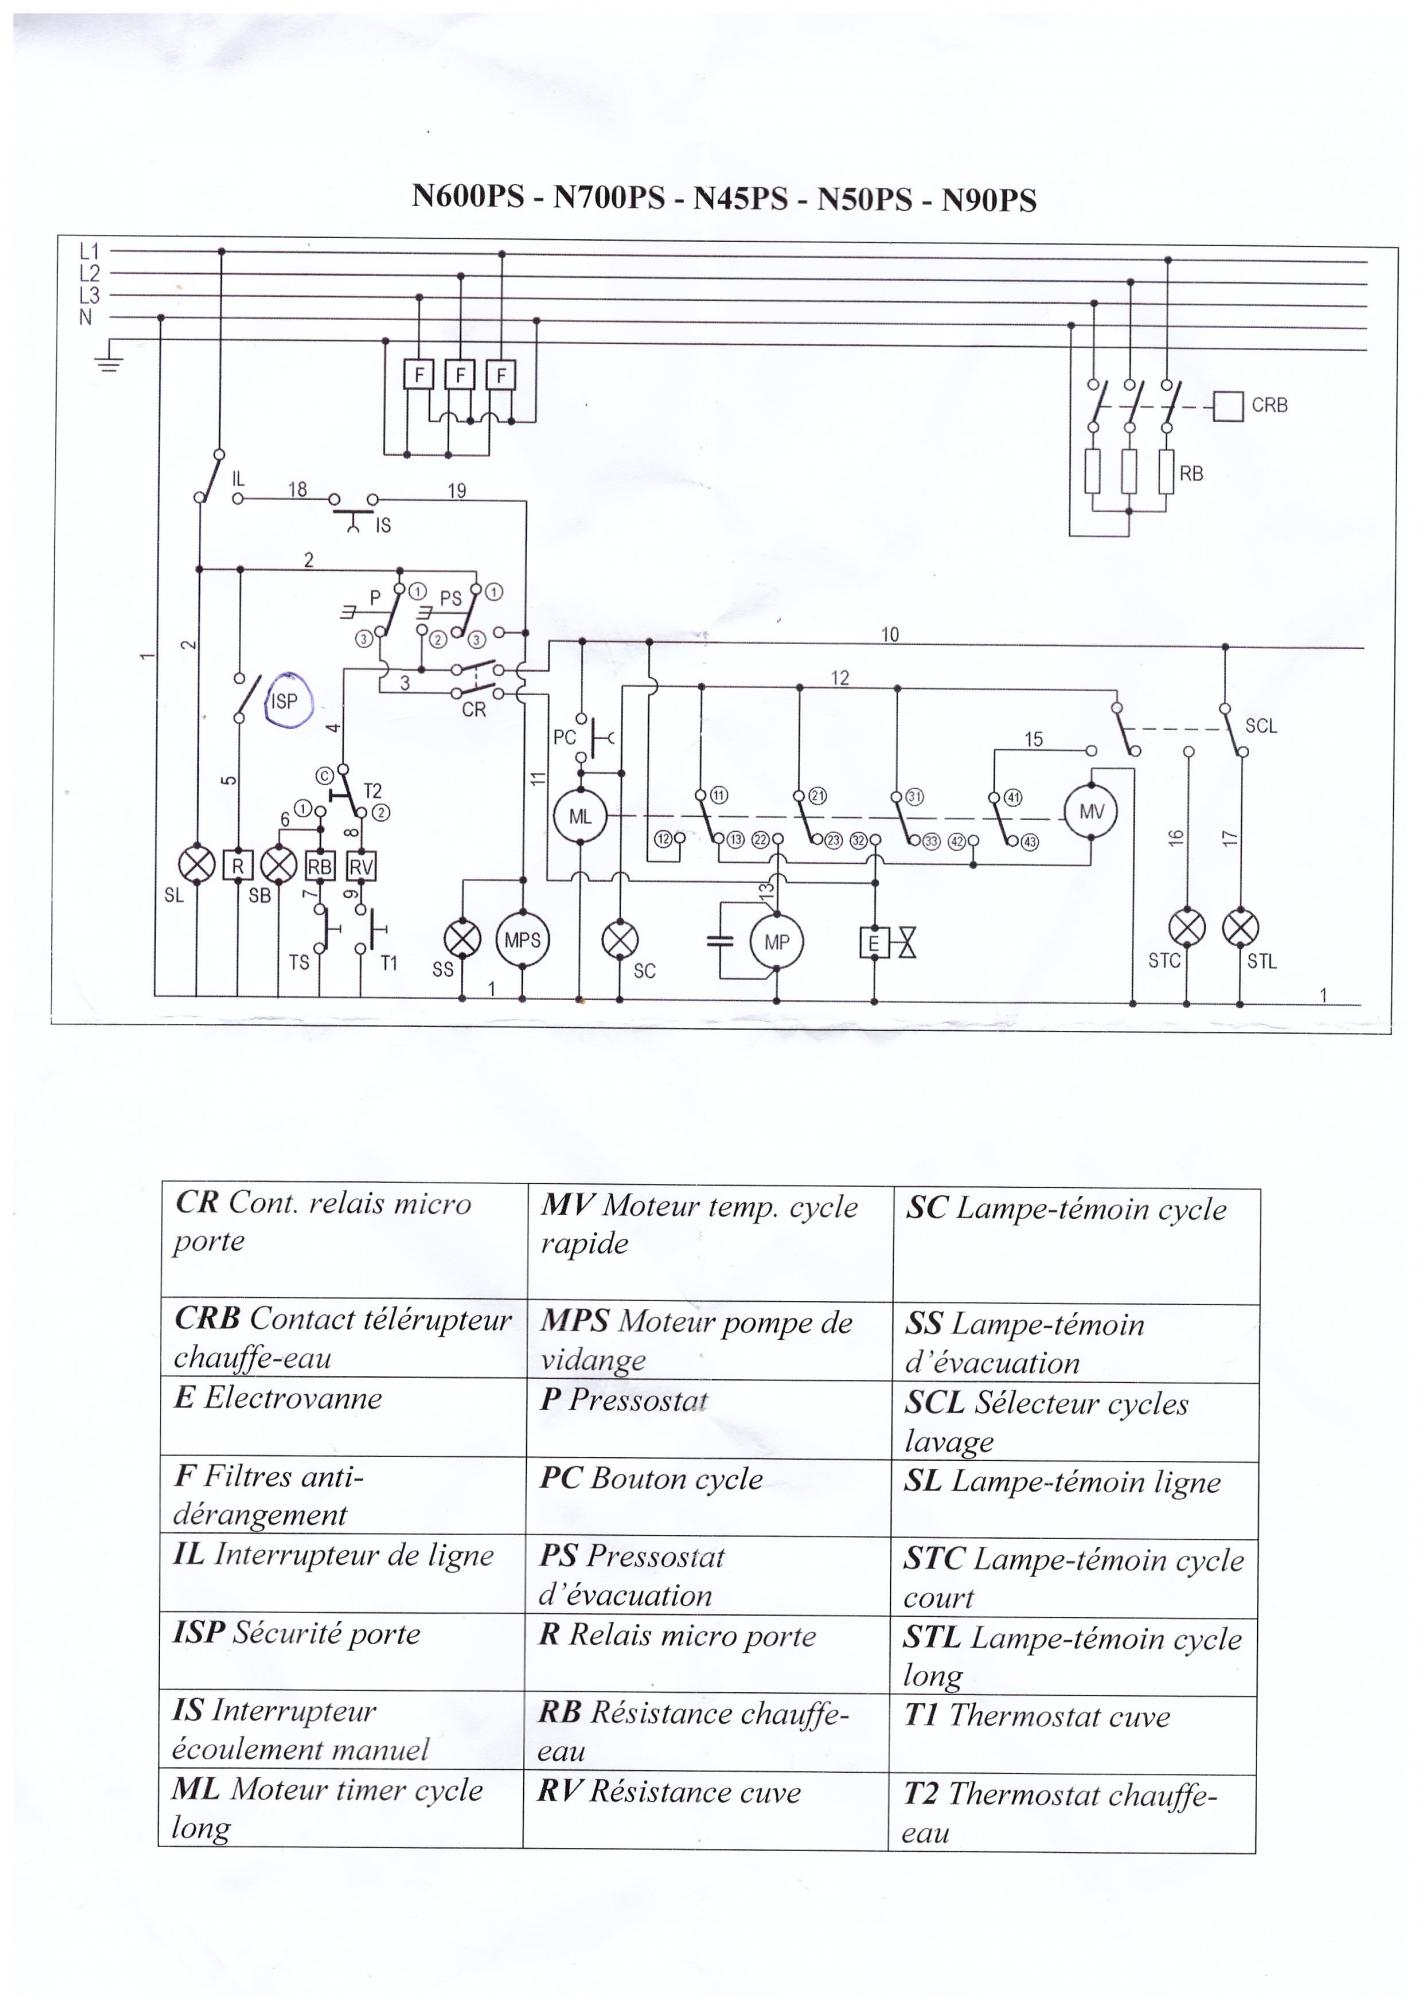 N600PS - N700PS - N45PS - N50PS - N90PS
L1
L2
L3
N
F F F
CRB
RB
IL
18
19
IS
2
P
1
PS
1
3
2
3
10
1
2
ISP
3
CR
4
12
SCL
PC
15
5
C
T2
11
1
2
6
8
ML
11
21
31
41
MV
12
13
22
23
32
33
42
43
16
17
SL
R
SB
RB
RV
7
9
13
TS
T1
SS
MPS
SC
MP
E
STC
STL
1
1
CR Cont. relais micro
porte
MV Moteur temp. cycle
rapide
SC Lampe-témoin cycle
CRB Contact télérupteur
chauffe-eau
MPS Moteur pompe de
vidange
SS Lampe-témoin
d'évacuation
E Electrovanne
P Pressostat
SCL Sélecteur cycles
lavage
F Filtres anti-
dérangement
PC Bouton cycle
SL Lampe-témoin ligne
IL Interrupteur de ligne
PS Pressostat
d'évacuation
STC Lampe-témoin cycle
court
ISP Sécurité porte
R Relais micro porte
STL Lampe-témoin cycle
long
IS Interrupteur
écoulement manuel
RB Résistance chauffe-
eau
T1 Thermostat cuve
ML Moteur timer cycle
long
RV Résistance cuve
T2 Thermostat chauffe-
eau